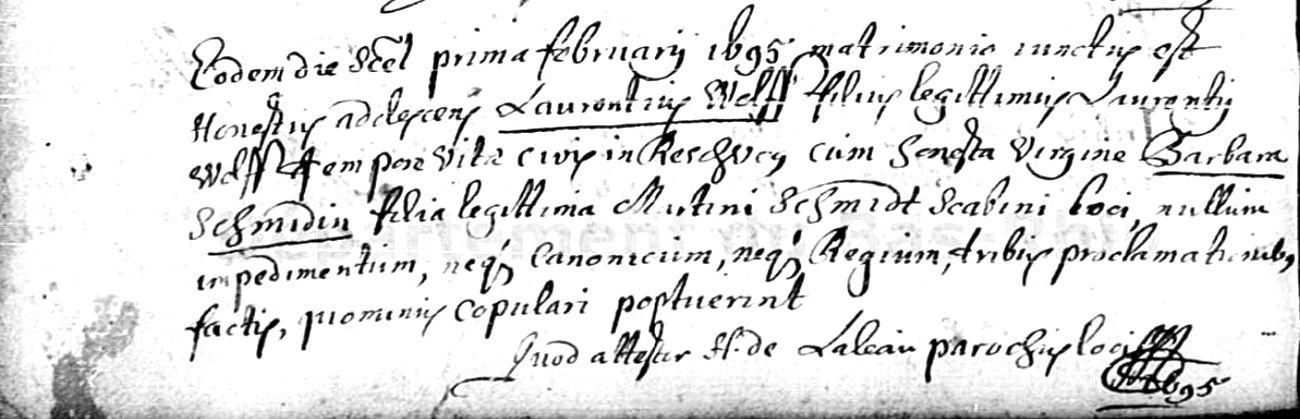 Eodem die Scil prima februarij 1695 matrimonio iunctus est
Honestus adolescens Laurentius Wolff filius legittimus Laurentij
Wolff tempore vitæ civis in Reschvog cum honesta virgine Barbara
Schmidin filia legittima Martini Schmidt Scabini loci, nullum
impedimentum, neq canonicum, neq Regium, tribus proclamationibus
factis, quominus copulari postuerint
Quod attestor H. de Laleau parochus loci
1695